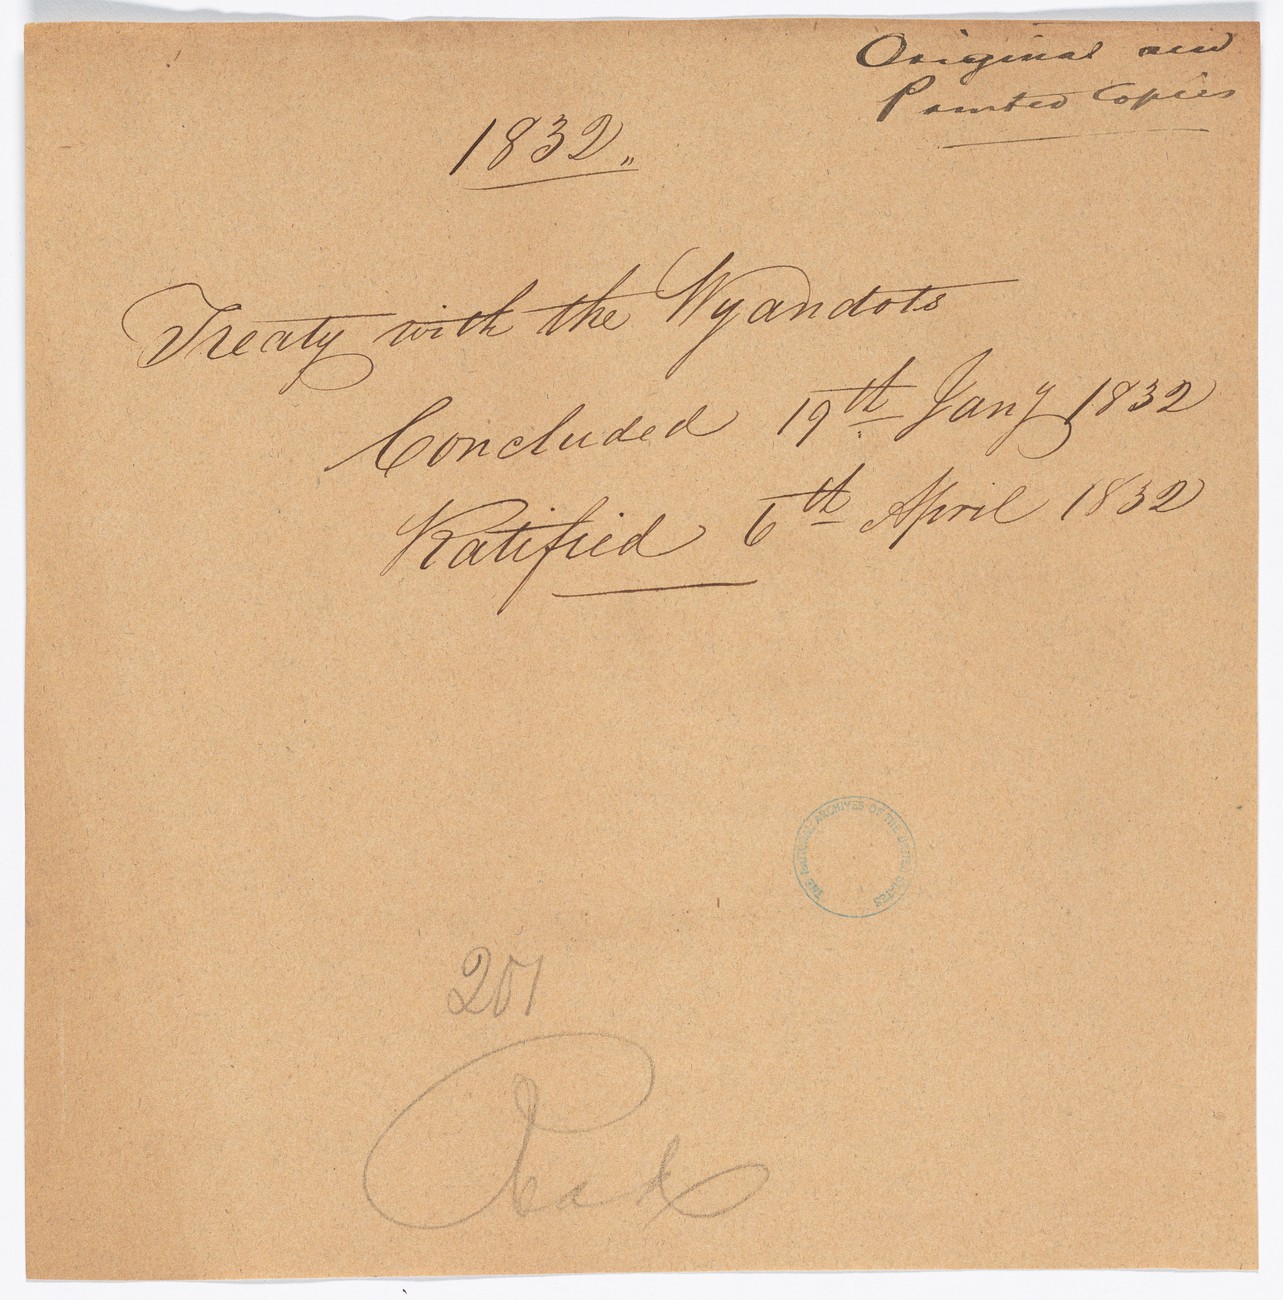 Original and
Printed Copies
1832„
Treaty with the Wyandots
Concluded 19th Jany 1832
Ratified 6th April 1832
THE NATIONAL ARCHIVES OF THE UNITED STATES
201
Read